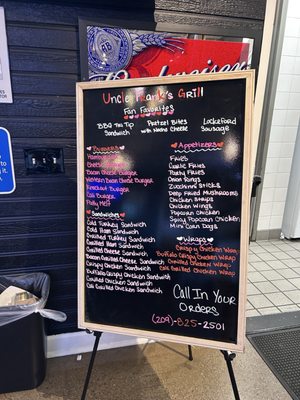 Budweiser
Uncle Frank's Grill
Fan Favorites
BBQ Tri Tip Sandwich
Pretzel Bites with Nacho Cheese
Lockeford Sausage
Burgers
Hamburger
Cheeseburger
Bacon Cheese Burger
Western Bacon Cheese Burger
Knockout Burger
Cali Burger
Patty Melt
Sandwiches
Cold Turkey Sandwich
Cold Ham Sandwich
Grilled Turkey Sandwich
Grilled Ham Sandwich
Grilled Cheese Sandwich
Bacon Grilled Cheese Sandwich
Crispy Chicken Sandwich
Buffalo Crispy Chicken Sandwich
Grilled Chicken Sandwich
Cali Grilled Chicken Sandwich
Appetizers
Fries
Garlic Fries
Tasty Fries
Onion Rings
Zucchini Sticks
Deep Fried Mushrooms
Chicken Strips
Chicken Wings
Popcorn Chicken
Spicy Popcorn Chicken
Mini Corn Dogs
Wraps
Crispy Chicken Wrap
Buffalo Crispy Chicken Wrap
Grilled Chicken Wrap
Cali Grilled Chicken Wrap
Call In Your
Orders
(209)-825-2501